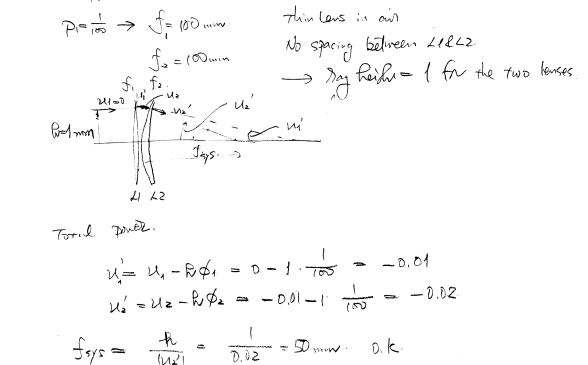 P₁ = 1/100 → f₁ = 100 mm
f₂ = 100 mm
thin lens in air
No spacing between L1&L2.
→ ray height = 1 for the two lenses
f₁ f₂
u₁=0 u₁' u₂
u₂' u₂'
h=1mm u₁'
fsys.
L1 L2
Total power.
u₁' = u₁ - hϕ₁ = 0 - 1 · 1/100 = -0.01
u₂' = u₂ - hϕ₂ = -0.01 - 1 · 1/100 = -0.02
fsys = h/|u₂'| = 1/0.02 = 50 mm. O.K.